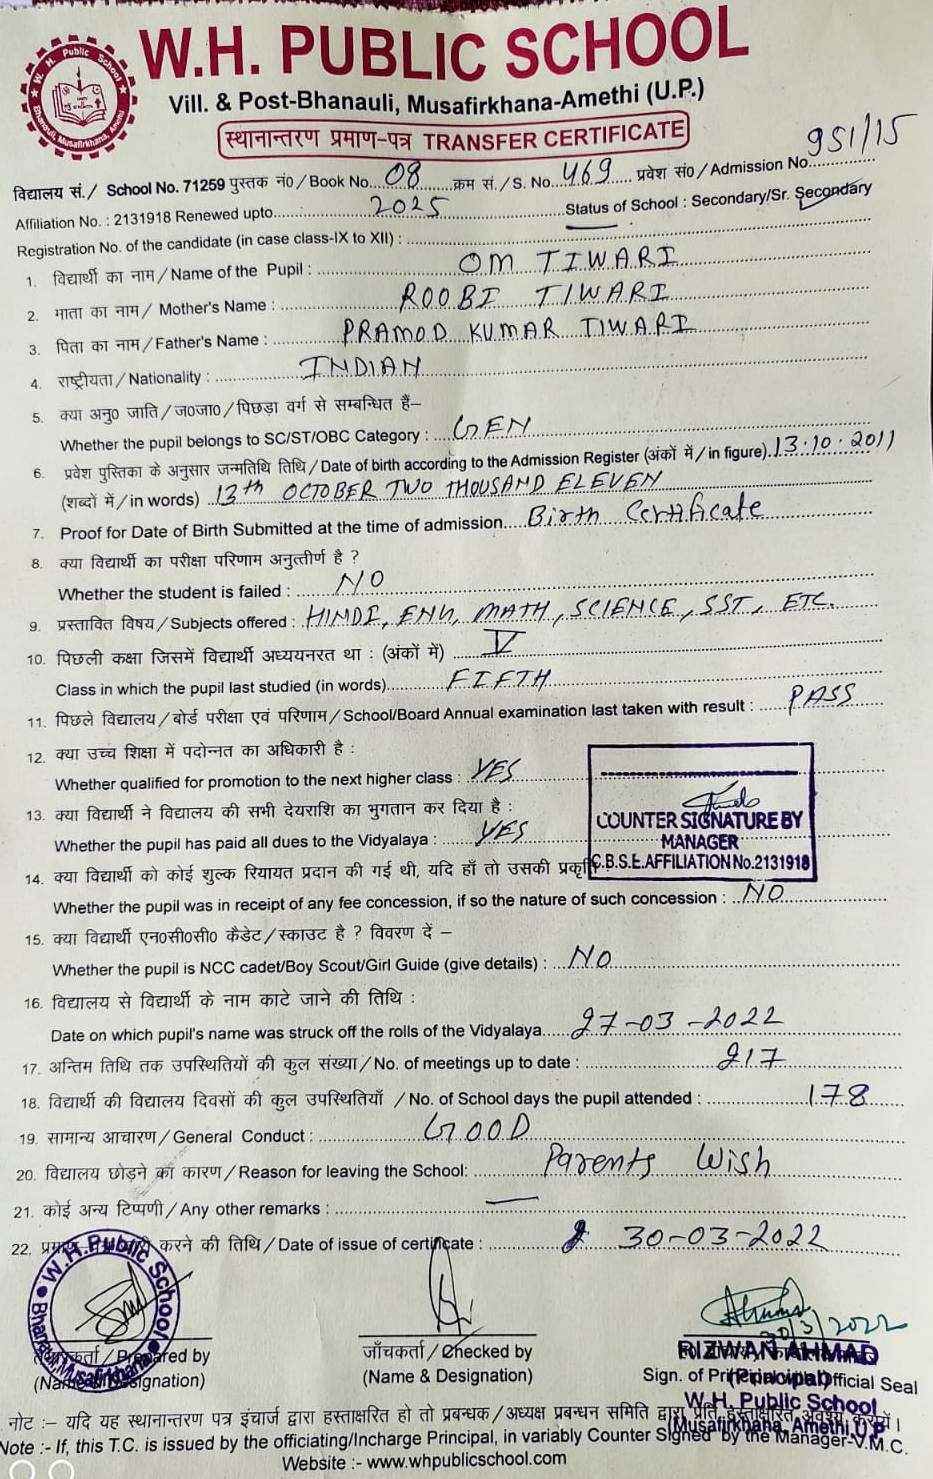 W.H. PUBLIC SCHOOL
Vill. & Post-Bhanauli, Musafirkhana-Amethi (U.P.)
स्थानान्तरण प्रमाण-पत्र TRANSFER CERTIFICATE
विद्यालय सं./ School No. 71259 पुस्तक नं०/Book No. 08 क्रम सं./S. No. 469 प्रवेश सं०/Admission No. 951/15
Affiliation No. : 2131918 Renewed upto 2025 Status of School : Secondary/Sr. Secondary
Registration No. of the candidate (in case class-IX to XII) : —
1. विद्यार्थी का नाम/Name of the Pupil : OM TIWARI
2. माता का नाम/ Mother's Name : ROOBI TIWARI
3. पिता का नाम/Father's Name : PRAMOD KUMAR TIWARI
4. राष्ट्रीयता/Nationality : INDIAN
5. क्या अनु० जाति/ज०जा०/पिछड़ा वर्ग से सम्बन्धित हैं–
Whether the pupil belongs to SC/ST/OBC Category : GEN
6. प्रवेश पुस्तिका के अनुसार जन्मतिथि तिथि/Date of birth according to the Admission Register (अंकों में/in figure) 13.10.2011
(शब्दों में/in words) 13th OCTOBER TWO THOUSAND ELEVEN
7. Proof for Date of Birth Submitted at the time of admission Birth Certificate
8. क्या विद्यार्थी का परीक्षा परिणाम अनुत्तीर्ण है ?
Whether the student is failed : NO
9. प्रस्तावित विषय/Subjects offered : HINDI, ENG, MATH, SCIENCE, SST, ETC.
10. पिछली कक्षा जिसमें विद्यार्थी अध्ययनरत था : (अंकों में) V
Class in which the pupil last studied (in words) FIFTH
11. पिछले विद्यालय/बोर्ड परीक्षा एवं परिणाम/School/Board Annual examination last taken with result : PASS
12. क्या उच्च शिक्षा में पदोन्नत का अधिकारी है :
Whether qualified for promotion to the next higher class : YES
13. क्या विद्यार्थी ने विद्यालय की सभी देयराशि का भुगतान कर दिया है :
Whether the pupil has paid all dues to the Vidyalaya : YES
COUNTER SIGNATURE BY
MANAGER
C.B.S.E. AFFILIATION No.2131918
14. क्या विद्यार्थी को कोई शुल्क रियायत प्रदान की गई थी, यदि हाँ तो उसकी
Whether the pupil was in receipt of any fee concession, if so the nature of such concession : NO
15. क्या विद्यार्थी एन०सी०सी० कैडेट/स्काउट है ? विवरण दें –
Whether the pupil is NCC cadet/Boy Scout/Girl Guide (give details) : NO
16. विद्यालय से विद्यार्थी के नाम काटे जाने की तिथि :
Date on which pupil's name was struck off the rolls of the Vidyalaya 27-03-2022
17. अन्तिम तिथि तक उपस्थितियों की कुल संख्या/No. of meetings up to date : 217
18. विद्यार्थी की विद्यालय दिवसों की कुल उपस्थितियाँ /No. of School days the pupil attended : 178
19. सामान्य आचारण/General Conduct : GOOD
20. विद्यालय छोड़ने का कारण/Reason for leaving the School: Parents Wish
21. कोई अन्य टिप्पणी/Any other remarks : —
22. करने की तिथि/Date of issue of certificate : 30-03-2022
W.H. Public School Bhanauli Musafirkhana
30/3/2022
Prepared by
(Name & Designation)
जाँचकर्ता/Checked by
(Name & Designation)
RIZWAN AHMAD
Sign. of Principal with Official Seal
(Principal)
W.H. Public School
Musafirkhana, Amethi U.P.
नोट :– यदि यह स्थानान्तरण पत्र इंचार्ज द्वारा हस्ताक्षरित हो तो प्रबन्धक/अध्यक्ष प्रबन्धन समिति द्वारा प्रति हस्ताक्षरित अवश्य करायें।
Note :- If, this T.C. is issued by the officiating/Incharge Principal, in variably Counter Signed by the Manager-V.M.C.
Website :- www.whpublicschool.com